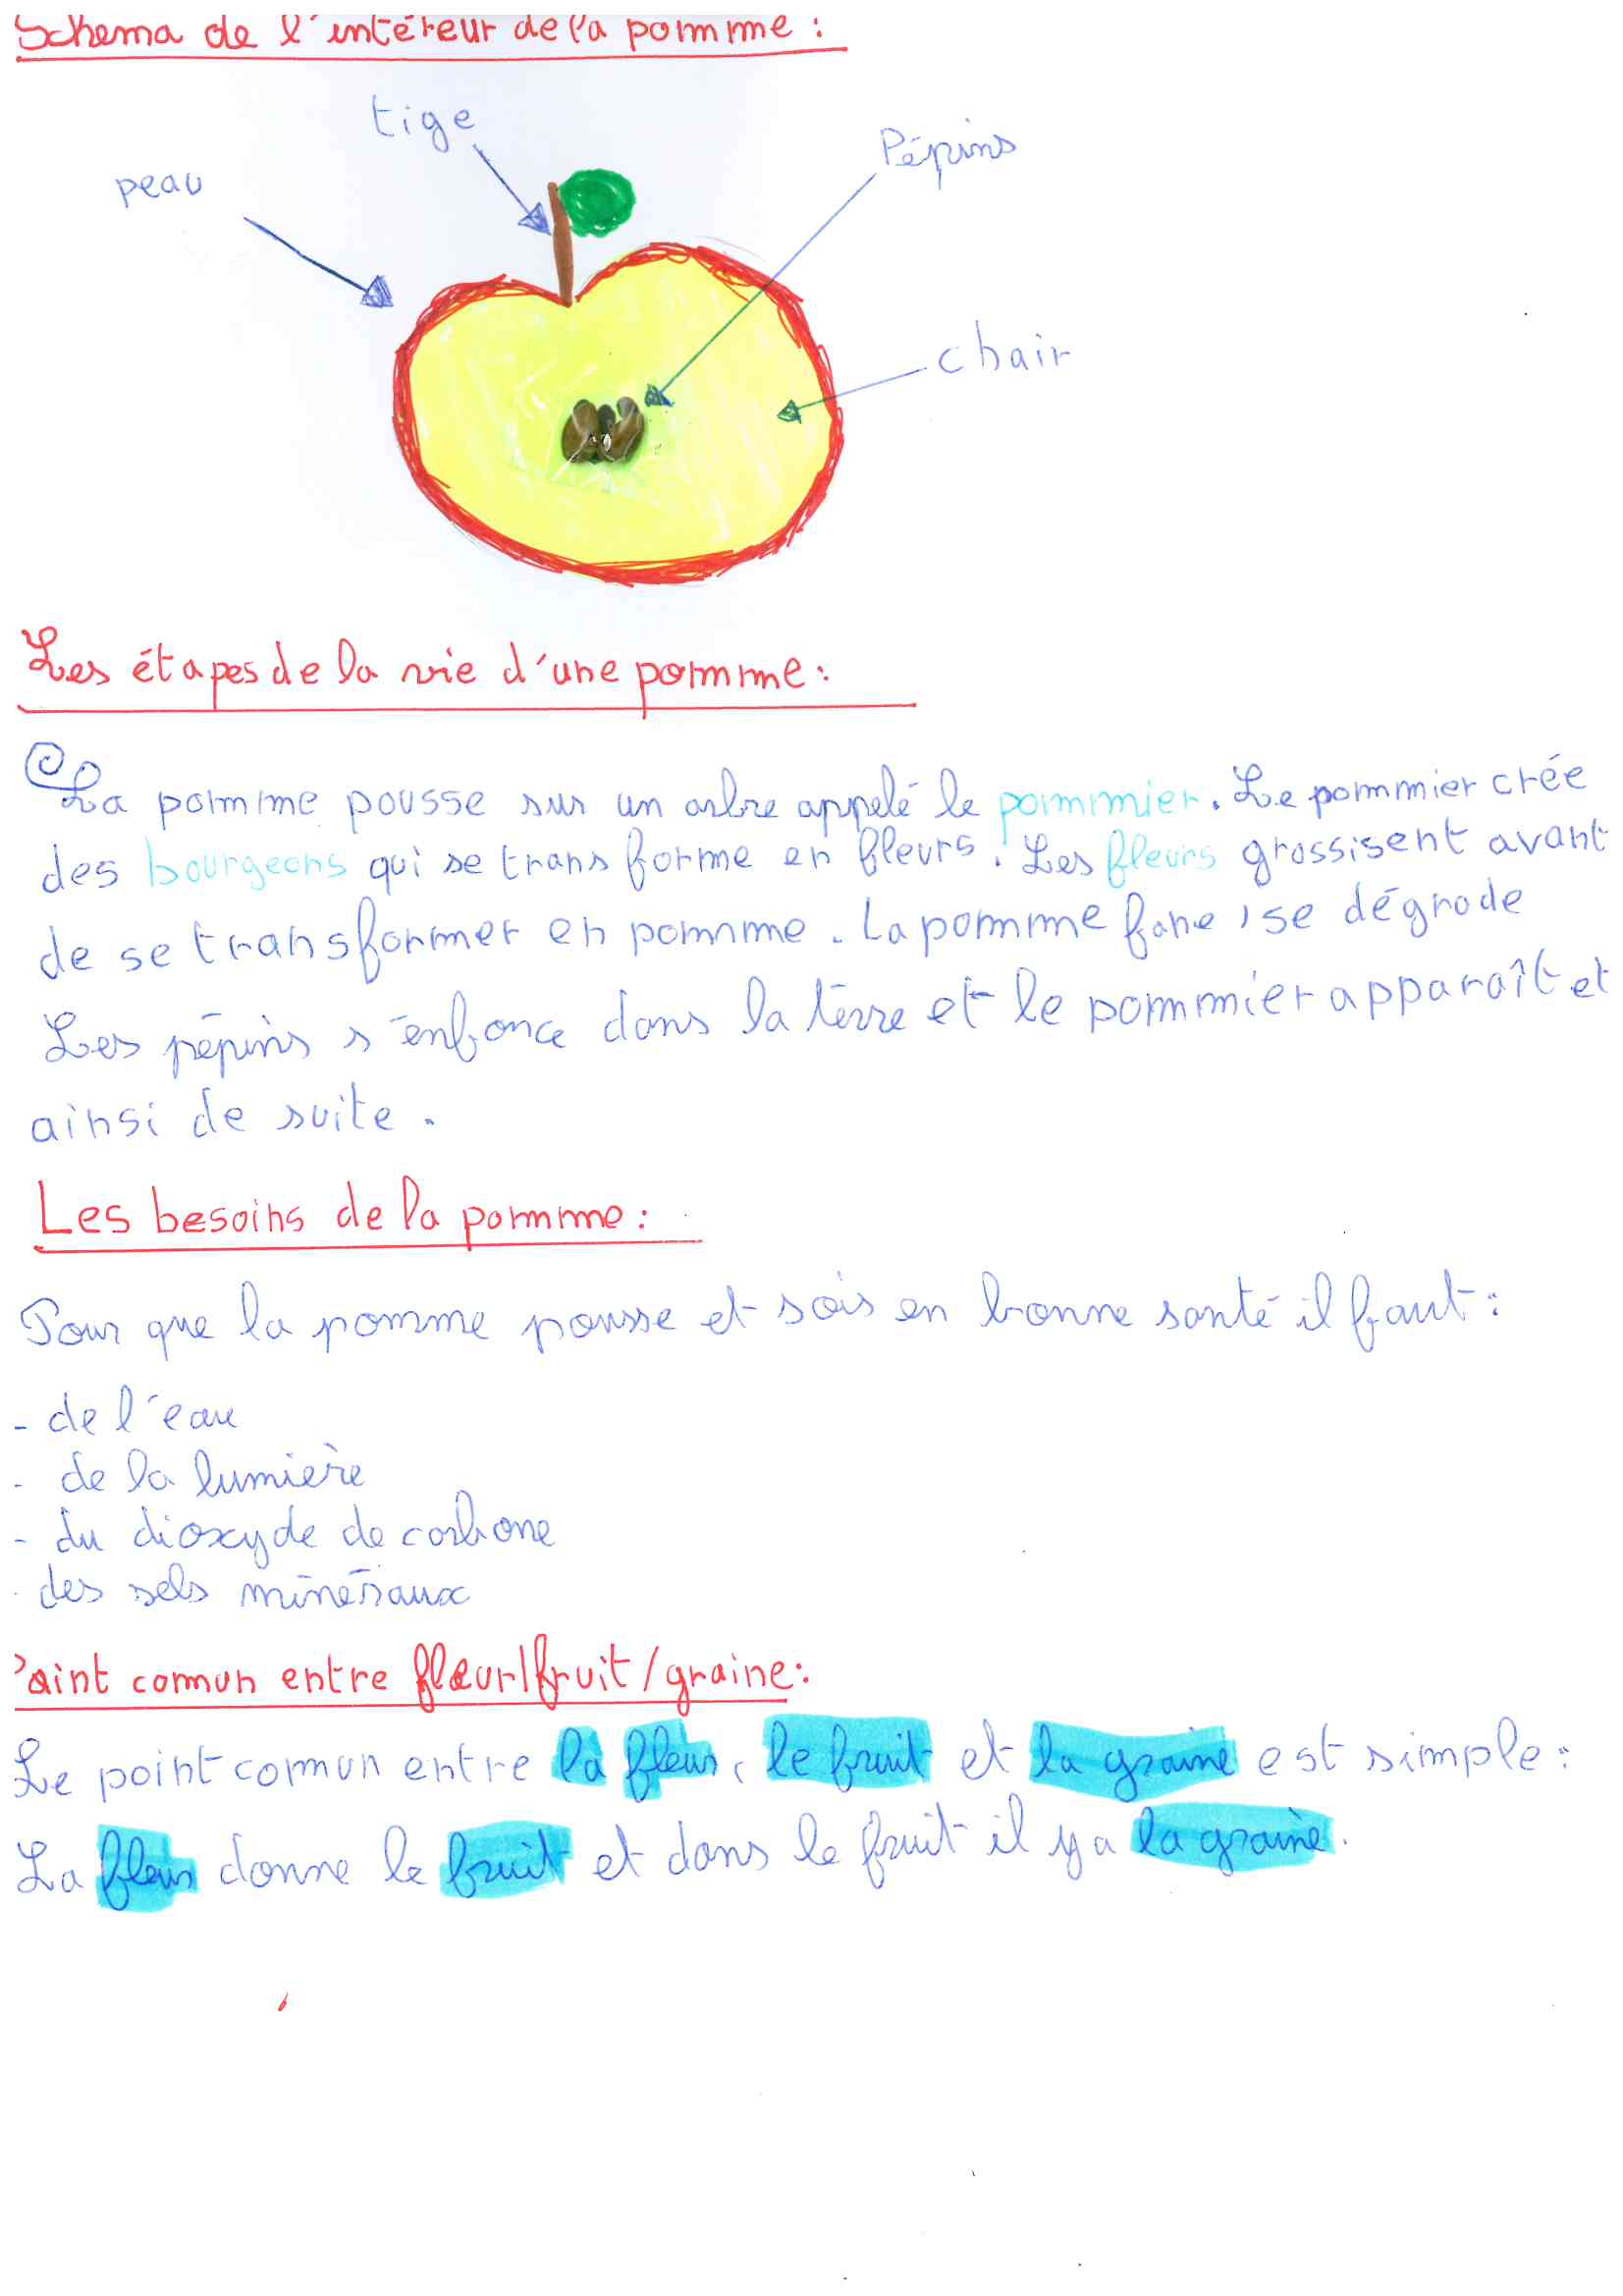 Schema de l'intéreur de la pomme :
tige
Pépins
peau
chair
Les étapes de la vie d'une pomme :
La pomme pousse sur un arbre appelé le pommier. Le pommier crée
des bourgeons qui se transforme en fleurs. Les fleurs grossisent avant
de se transformer en pomme. La pomme fane, se dégrade
Les pépins s'enfonce dans la terre et le pommier apparaît et
ainsi de suite.
Les besoins de la pomme :
Pour que la pomme pousse et sois en bonne santé il faut :
- de l'eau
- de la lumière
- du dioxyde de carbone
- des sels minéraux
Point comun entre fleur/fruit/graine :
Le point comun entre la fleur, le fruit et la graine est simple :
La fleur donne le fruit et dans le fruit il y a la graine.